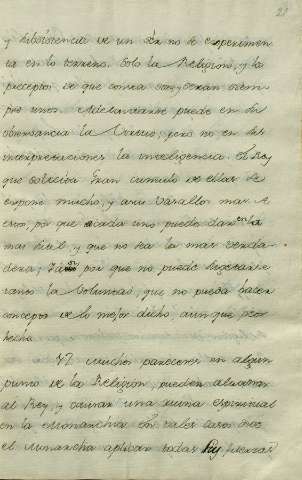 28
y subsistencia de un Ser no se experimen
ta en lo terreno. Solo la Religion, y los
preceptos de que consta son, y serán siem
pre unos. Adelantarse puede en su
observancia la Virtud; pero no en sus
interpretaciones la inteligencia. El Rey
que solicita gran cumulo de ellas se
expone mucho, y a su Vasallo mas à
error, por que cada uno puede dar en la
mas util, y que no sea la mas verda
dera; por que no puede
tanto la Voluntad, que no pueda hacer
concepto de lo mejor dicho, aunque peor
hecho.
47 Muchos pareceres en algun
punto de la Religion, pueden
al Rey, y causar una ruina espiritual
en la Monarchia. En tales casos debe
el Monarcha aplicar todas sus fuerzas